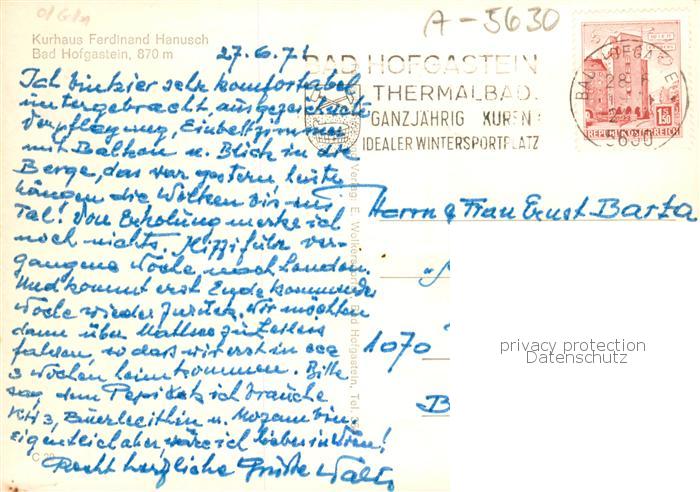 A-5630
Kurhaus Ferdinand Hanusch
Bad Hofgastein, 870 m
27.6.71
Ich bin hier sehr komfortabel
untergebracht, ausgezeichnete
Verpflegung, Einbettzimmer
mit Balkon u. Blick in die
Berge, das vorgestern, heute
hängen die Wolken bis ins
Tal! Von Erholung merke ich
noch nichts. Mizzi fuhr ver-
gangene Woche nach London.
Und kommt erst Ende kommender
Woche wieder zurück. Wir möchten
dann über
fahren, so daß wir erst in ca
3 Wochen heimkommen. Bitte
sag dem ich brauche
KH3, Buerlecithin u.
Eigentlich aber, wäre ich lieber in Wien!
Recht herzliche Grüße
BAD HOFGASTEIN
THERMALBAD.
GANZJÄHRIG KUREN
IDEALER WINTERSPORTPLATZ
BAD HOFGASTEIN
5630
WIEN
1.50
REPUBLIK ÖSTERREICH
Herrn & Frau Ernst Barta
1070
B
Verlag: E. Bad Hofgastein, Tel.
privacy protection
Datenschutz